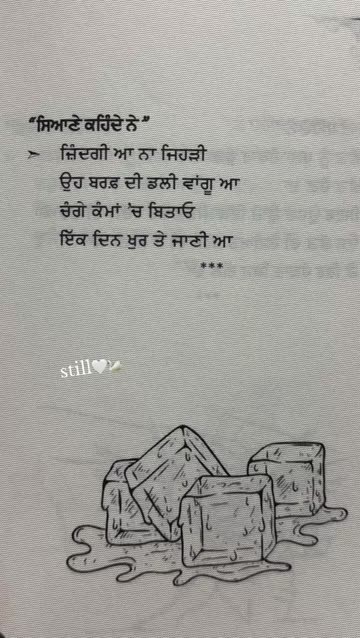 “ਸਿਆਣੇ ਕਹਿੰਦੇ ਨੇ”
➣ ਜ਼ਿੰਦਗੀ ਆ ਨਾ ਜਿਹੜੀ
ਉਹ ਬਰਫ਼ ਦੀ ਡਲੀ ਵਾਂਗੂ ਆ
ਚੰਗੇ ਕੰਮਾਂ 'ਚ ਬਿਤਾਓ
ਇੱਕ ਦਿਨ ਖੁਰ ਤੇ ਜਾਣੀ ਆ
***
still🤍🕊️